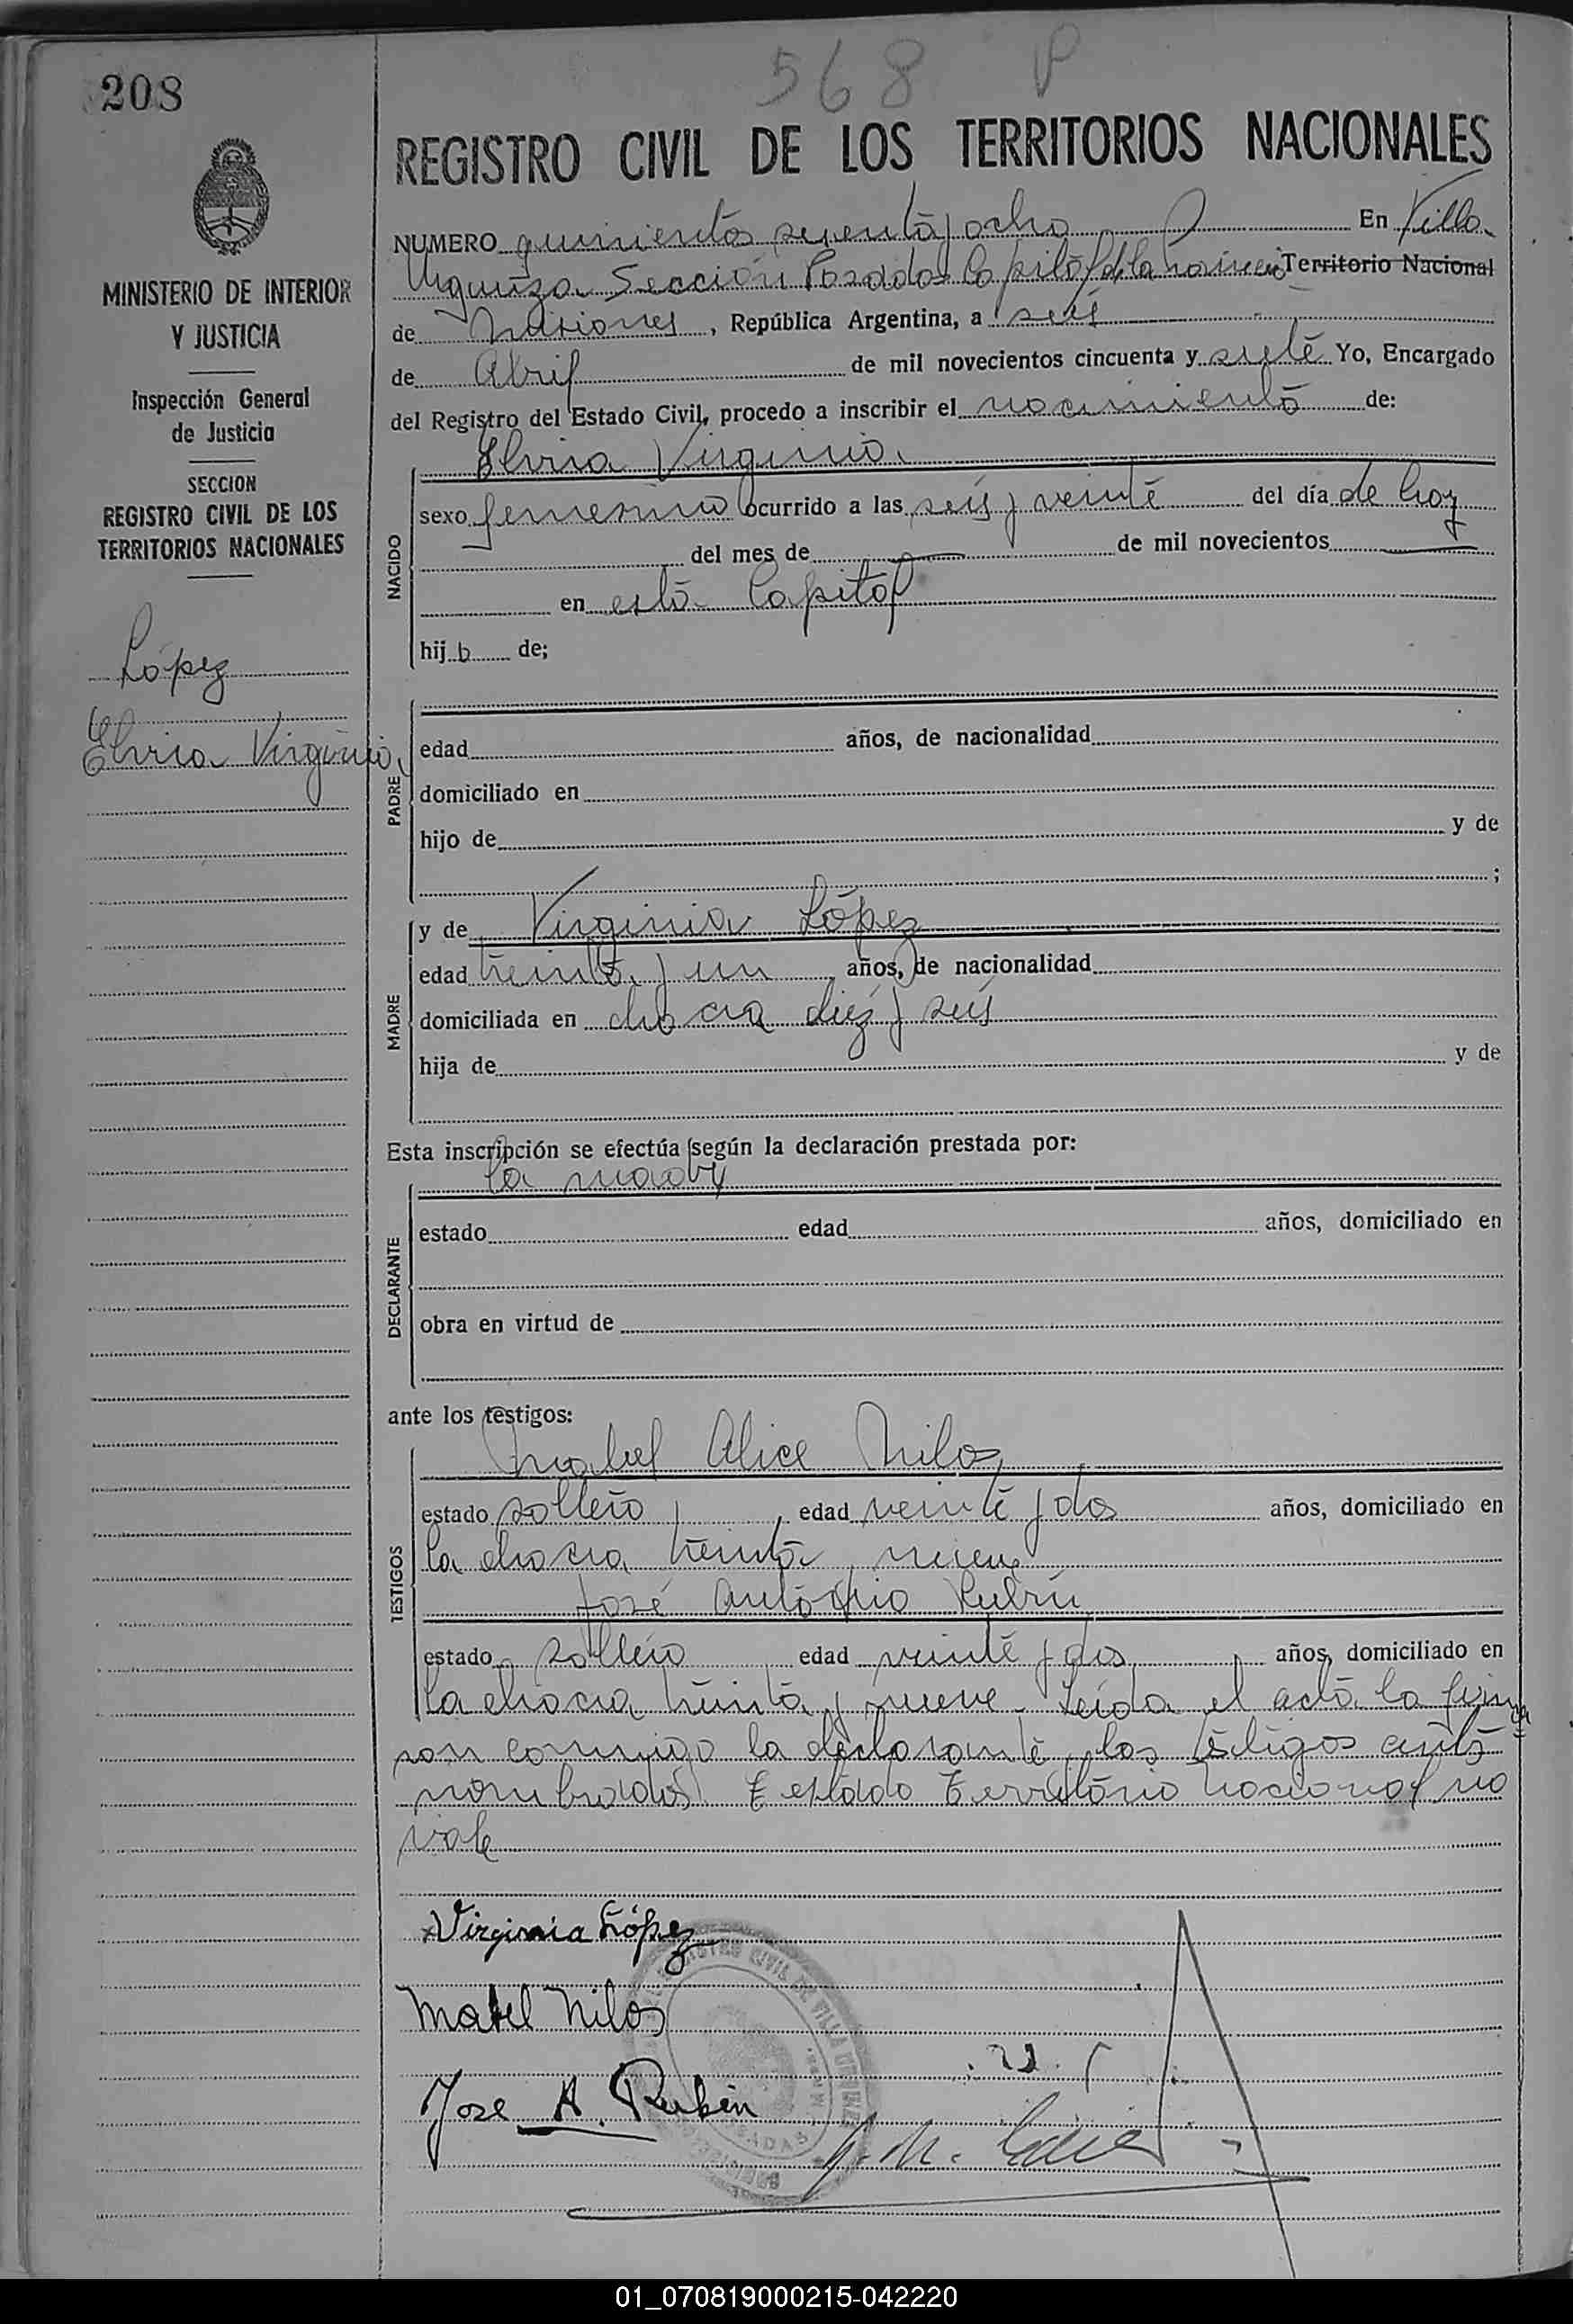 568 P
208
REGISTRO CIVIL DE LOS TERRITORIOS NACIONALES
NUMERO quinientos sesenta y ocho En Villa
Urquiza Sección Posadas Capital de la Provincia Territorio Nacional
de Misiones, República Argentina, a seis
de Abril de mil novecientos cincuenta y siete Yo, Encargado
del Registro del Estado Civil, procedo a inscribir el nacimiento de:
MINISTERIO DE INTERIOR
Y JUSTICIA
Inspección General
de Justicia
SECCION
REGISTRO CIVIL DE LOS
TERRITORIOS NACIONALES
López
Elvria Virginia
NACIDO
Elvria Virginia
sexo femenino ocurrido a las seis y veinte del día de hoy
del mes de de mil novecientos
en esta Capital
hij de;
PADRE
edad años, de nacionalidad
domiciliado en
hijo de y de
;
MADRE
y de Virginia López
edad treinta y un años, de nacionalidad
domiciliada en chacra diez y seis
hija de y de
Esta inscripción se efectúa según la declaración prestada por:
la madre
DECLARANTE
estado edad años, domiciliado en
obra en virtud de
ante los testigos:
TESTIGOS
Mabel Alice Milos
estado soltera edad veinte y dos años, domiciliado en
la chacra treinta nueve
José Antonio Rubin
estado soltero edad veinte y dos años, domiciliado en
la chacra treinta y nueve - Leida el acta la firma
ron conmigo la declarante y los testigos ante
nombrados Testado Territorio Nacional no
vale
Virginia López
Mabel Milos
Jose A. Rubin
REGISTRO CIVIL DE VILLA URQUIZA
POSADAS
01_070819000215-042220